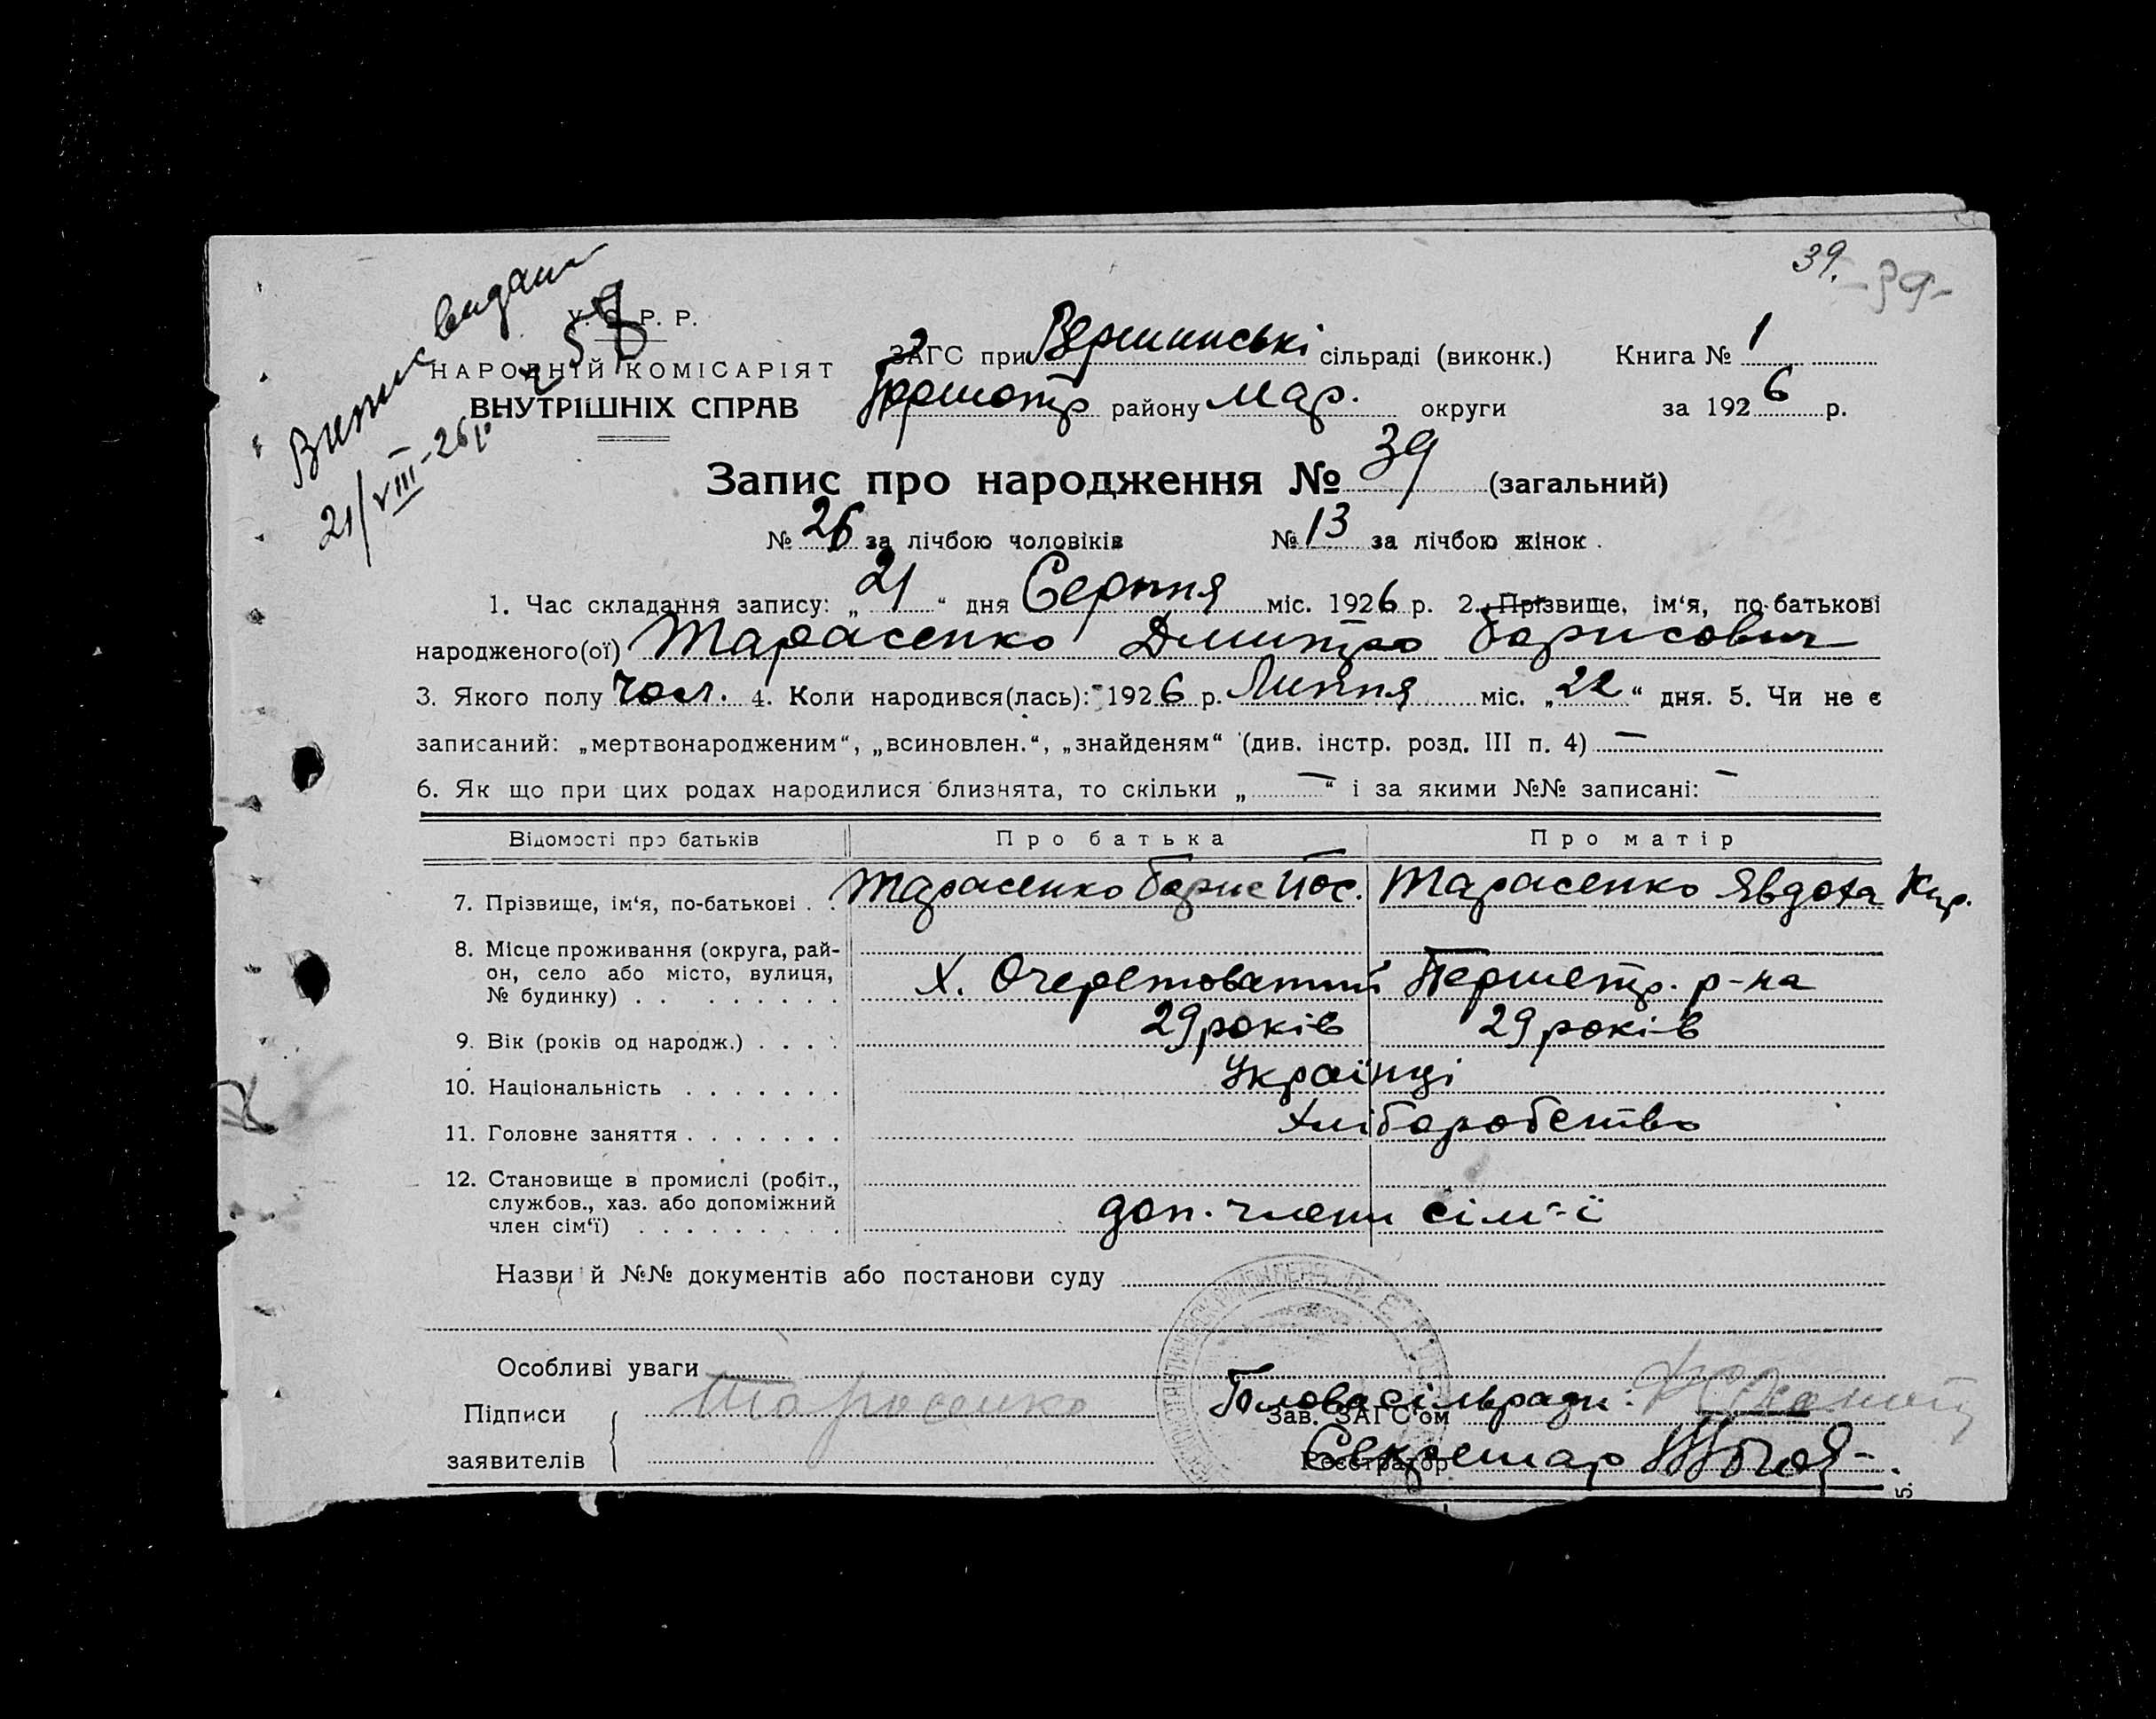 39. -39-
Випис видан
21/VIII-26р.
У. С. Р. Р.
НАРОДНІЙ КОМІСАРІЯТ
ВНУТРІШНІХ СПРАВ
ЗАГС при Вершинські сільраді (виконк.) Книга № 1
району Мар. округи за 1926 р.
Запис про народження № 39 (загальний)
№ 26 за лічбою чоловіків № 13 за лічбою жінок.
1. Час складання запису: „21“ дня Серпня міс. 1926 р. 2. Прізвище, ім‘я, по-батькові
народженого(ої) Тарасенко Дмитро Борисович
3. Якого полу чол. 4. Коли народився(лась): 1926 р. Липня міс. „22“ дня. 5. Чи не є
записаний: „мертвонародженим“, „всиновлен.“, „знайденям“ (див. інстр. розд. III п. 4) —
6. Як що при цих родах народилися близнята, то скільки „—“ і за якими №№ записані: —
Відомості про батьків Про батька Про матір
7. Прізвище, ім‘я, по-батькові . . Тарасенко Борис Йос. Тарасенко Явдоха Кир.
8. Місце проживання (округа, рай-
он, село або місто, вулиця,
№ будинку) . . . . . . . . . Х. Очеретоватий Першетр. р-на
9. Вік (років од народж.) . . . . 29 років 29 років
10. Національність . . . . . . . Українці
11. Головне заняття . . . . . . . Хліборобство
12. Становище в промислі (робіт.,
службов., хаз. або допоміжний
член сім‘ї) . . . . . . . . . доп. члени сім‘ї
Назви й №№ документів або постанови суду
Особливі уваги
Підписи Тарасенко Голова сільради:
Зав. ЗАГС‘ом
заявителів Секретар
Реєстратор
5.